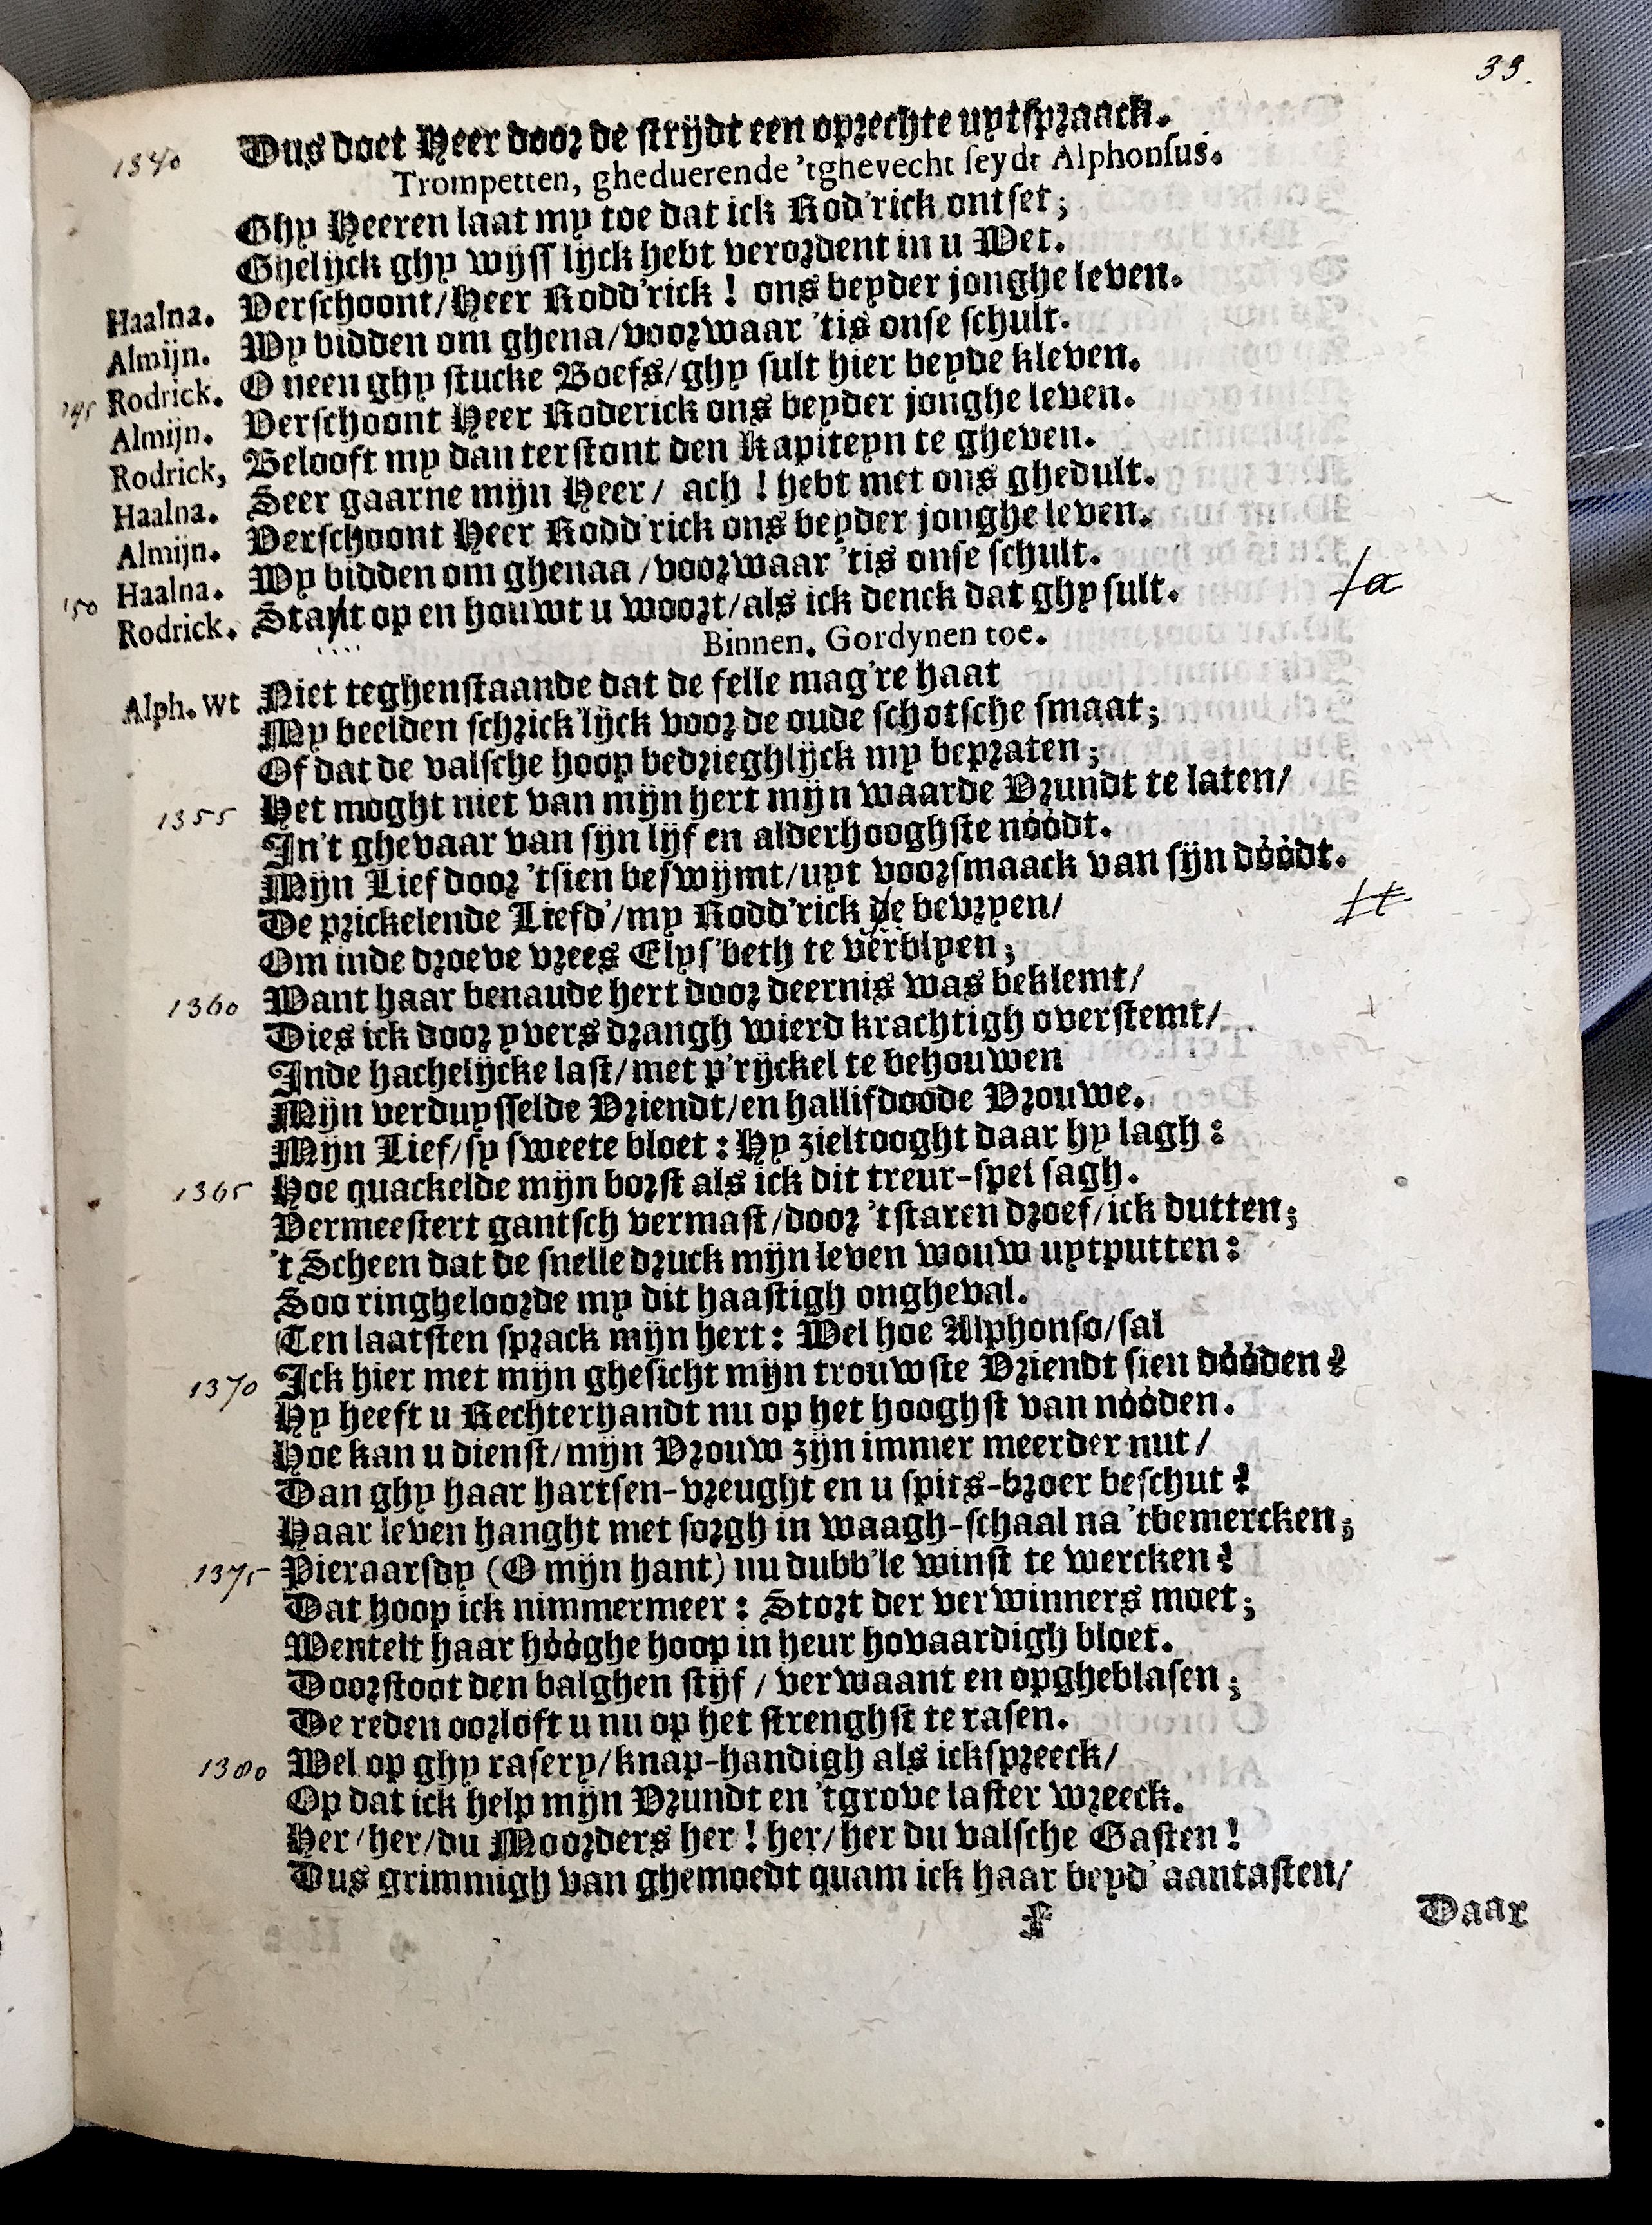 33.
1340 Dus doet Heer door de strijdt een oprechte uytspraack.
Trompetten, gheduerende 'tghevecht seydt Alphonsus.
Ghy Heeren laat my toe dat ick Rod'rick ontset;
Ghelijck ghy wijss'lijck hebt verordent in u Wet.
Haalna. Verschoont/Heer Rodd'rick! ons beyder jonghe leven.
Almijn. Wy bidden om ghena/voorwaar 'tis onse schult.
145 Rodrick. O neen ghy stucke Boefs/ghy sult hier beyde kleven.
Almijn. Verschoont Heer Roderick ons beyder jonghe leven.
Rodrick, Belooft my dan terstont den Kapiteyn te gheven.
Haalna. Seer gaarne mijn Heer/ ach! hebt met ons ghedult.
Almijn. Verschoont Heer Rodd'rick ons beyder jonghe leven.
150 Haalna. Wy bidden om ghenaa/voorwaar 'tis onse schult.
Rodrick. Stayt op en houwt u woort/als ick denck dat ghy sult. /a
Binnen. Gordynen toe.
Alph. wt Niet teghenstaande dat de felle mag're haat
My beelden schrick'lijck voor de oude schotsche smaat;
Of dat de valsche hoop bedrieghlijck my bepraten;
1355 Het moght niet van mijn hert mijn waarde Vrundt te laten/
In't ghevaar van sijn lijf en alderhooghste nóódt.
Mijn Lief door 'tsien beswijmt/uyt voorsmaack van sijn dóódt.
De prickelende Liefd'/my Rodd'rick de bevryen/ /t
Om inde droeve vrees Elys'beth te verblyen;
1360 Want haar benaude hert door deernis was beklemt/
Dies ick door yvers drangh wierd krachtigh overstemt/
Inde hachelijcke last/met p'rijckel te behouwen
Mijn verduysselde Vriendt/en hallifdoode Vrouwe.
Mijn Lief/sy sweete bloet: Hy zieltooght daar hy lagh:
1365 Hoe quackelde mijn borst als ick dit treur-spel sagh.
Vermeestert gantsch vermast/door 'tstaren droef/ick dutten;
't Scheen dat de snelle druck mijn leven wouw uytputten:
Soo ringheloorde my dit haastigh ongheval.
Ten laatsten sprack mijn hert: Wel hoe Alphonso/sal
1370 Ick hier met mijn ghesicht mijn trouwste Vriendt sien dóóden?
Hy heeft u Rechterhandt nu op het hooghst van nóóden.
Hoe kan u dienst/mijn Vrouw zijn immer meerder nut/
Dan ghy haar hartsen-vreught en u spits-broer beschut?
Haar leven hanght met sorgh in waagh-schaal na 'tbemercken;
1375 Pieraarsdy (O mijn hant) nu dubb'le winst te wercken?
Dat hoop ick nimmermeer: Stort der verwinners moet;
Wentelt haar hóóghe hoop in heur hovaardigh bloet.
Doorstoot den balghen stijf/ verwaant en opgheblasen;
De reden oorloft u nu op het strenghst te rasen.
1380 Wel op ghy rasery/knap-handigh als ick spreeck/
Op dat ick help mijn Vrundt en 'tgrove laster wreeck.
Her/her/du Moorders her! her/her du valsche Gasten!
Dus grimmigh van ghemoedt quam ick haar beyd' aantasten/
F
Daar